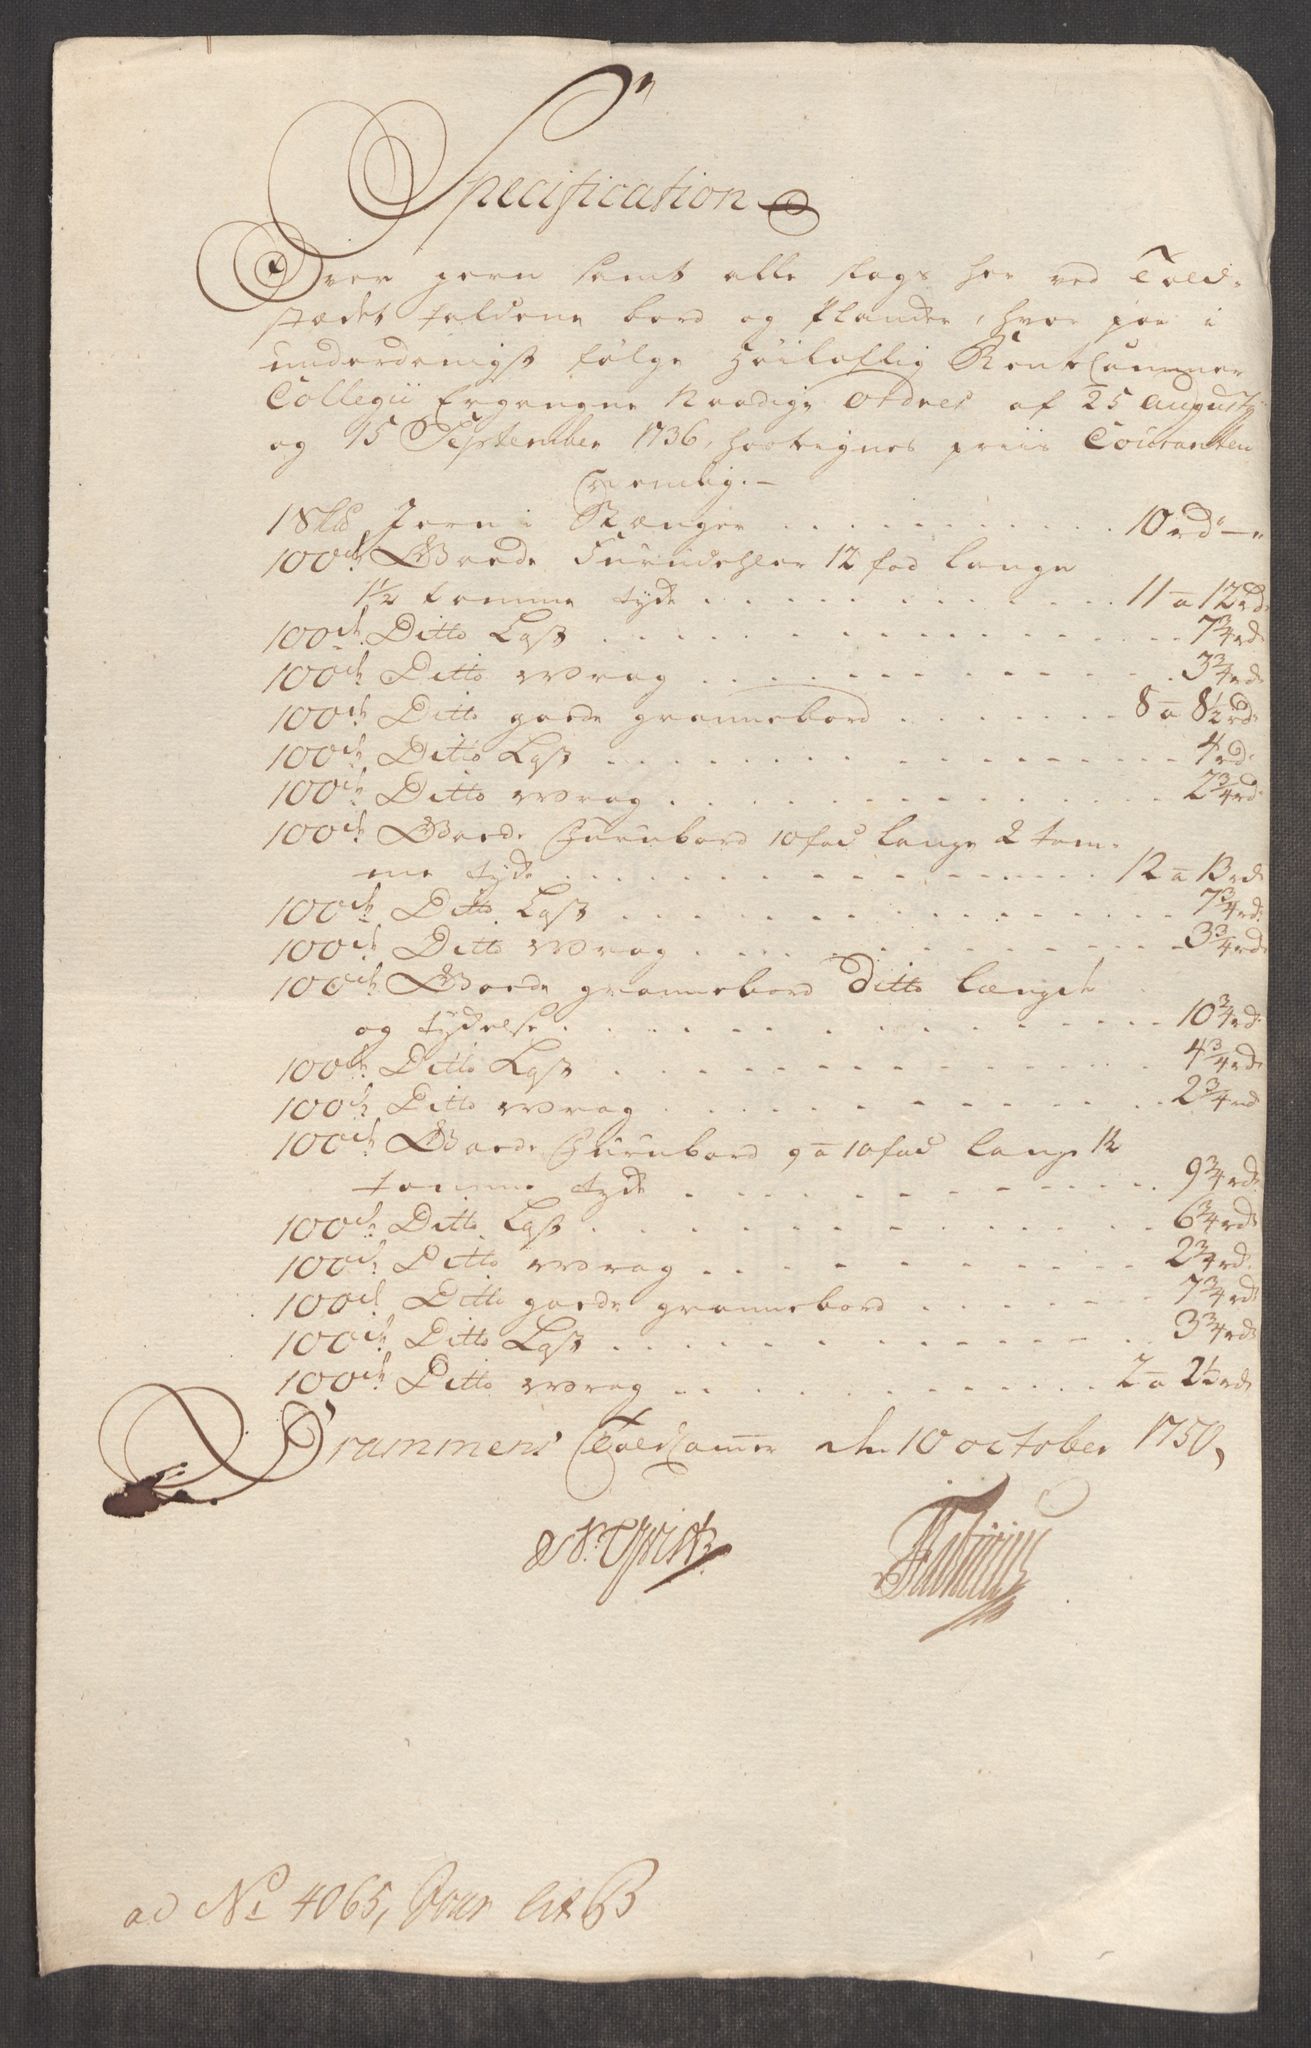 Specification
Over jern samt alle slags her ved Told-
stædet faldene bord og Plancker, hvor paa i
underdanigst følge Høilaflig Rente Cammer
Collegii Ergangne Naadige Ordres af 25 Augusty
og 15 September 1736, hostegnes priis Couranten
Nemlig.-
1 Skd Jern i Stænger . . . 10 rd -"
100ch Goede Furudehler 12 fod lange
1½ tomme tyke . . . 11 a 12 rd
100ch Ditto Last . . . 7¾ rd
100ch Ditto Wrag . . . 3¾ rd
100ch Ditto goede grannebord . . . 8 a 8½ rd
100ch Ditto Last . . . 4 rd
100ch Ditto Wrag . . . 2¾ rd
100ch Goede Furubord 10 fod lange 2 tom-
me tyke . . . 12 a 13 rd
100ch Ditto Last . . . 7¾ rd
100ch Ditto Wrag . . . 3¾ rd
100ch Goede grannebord Ditto længde
og tykelse . . . 10¾ rd
100ch Ditto Last . . . 4¾ rd
100ch Ditto Wrag . . . 2¾ rd
100ch Goede Furubord 9 a 10 fod lange 1½
tomme tyke . . . 9¾ rd
100ch Ditto Last . . . 6¾ rd
100ch Ditto Wrag . . . 2¾ rd
100ch Ditto goede grannebord . . . 7¾ rd
100ch Ditto Last . . . 3¾ rd
100ch Ditto Wrag . . . 2 a 2½ rd
Drammens Told Cammer den 10 october 1750,
Fabricius
ad No 4065, Jour lit B